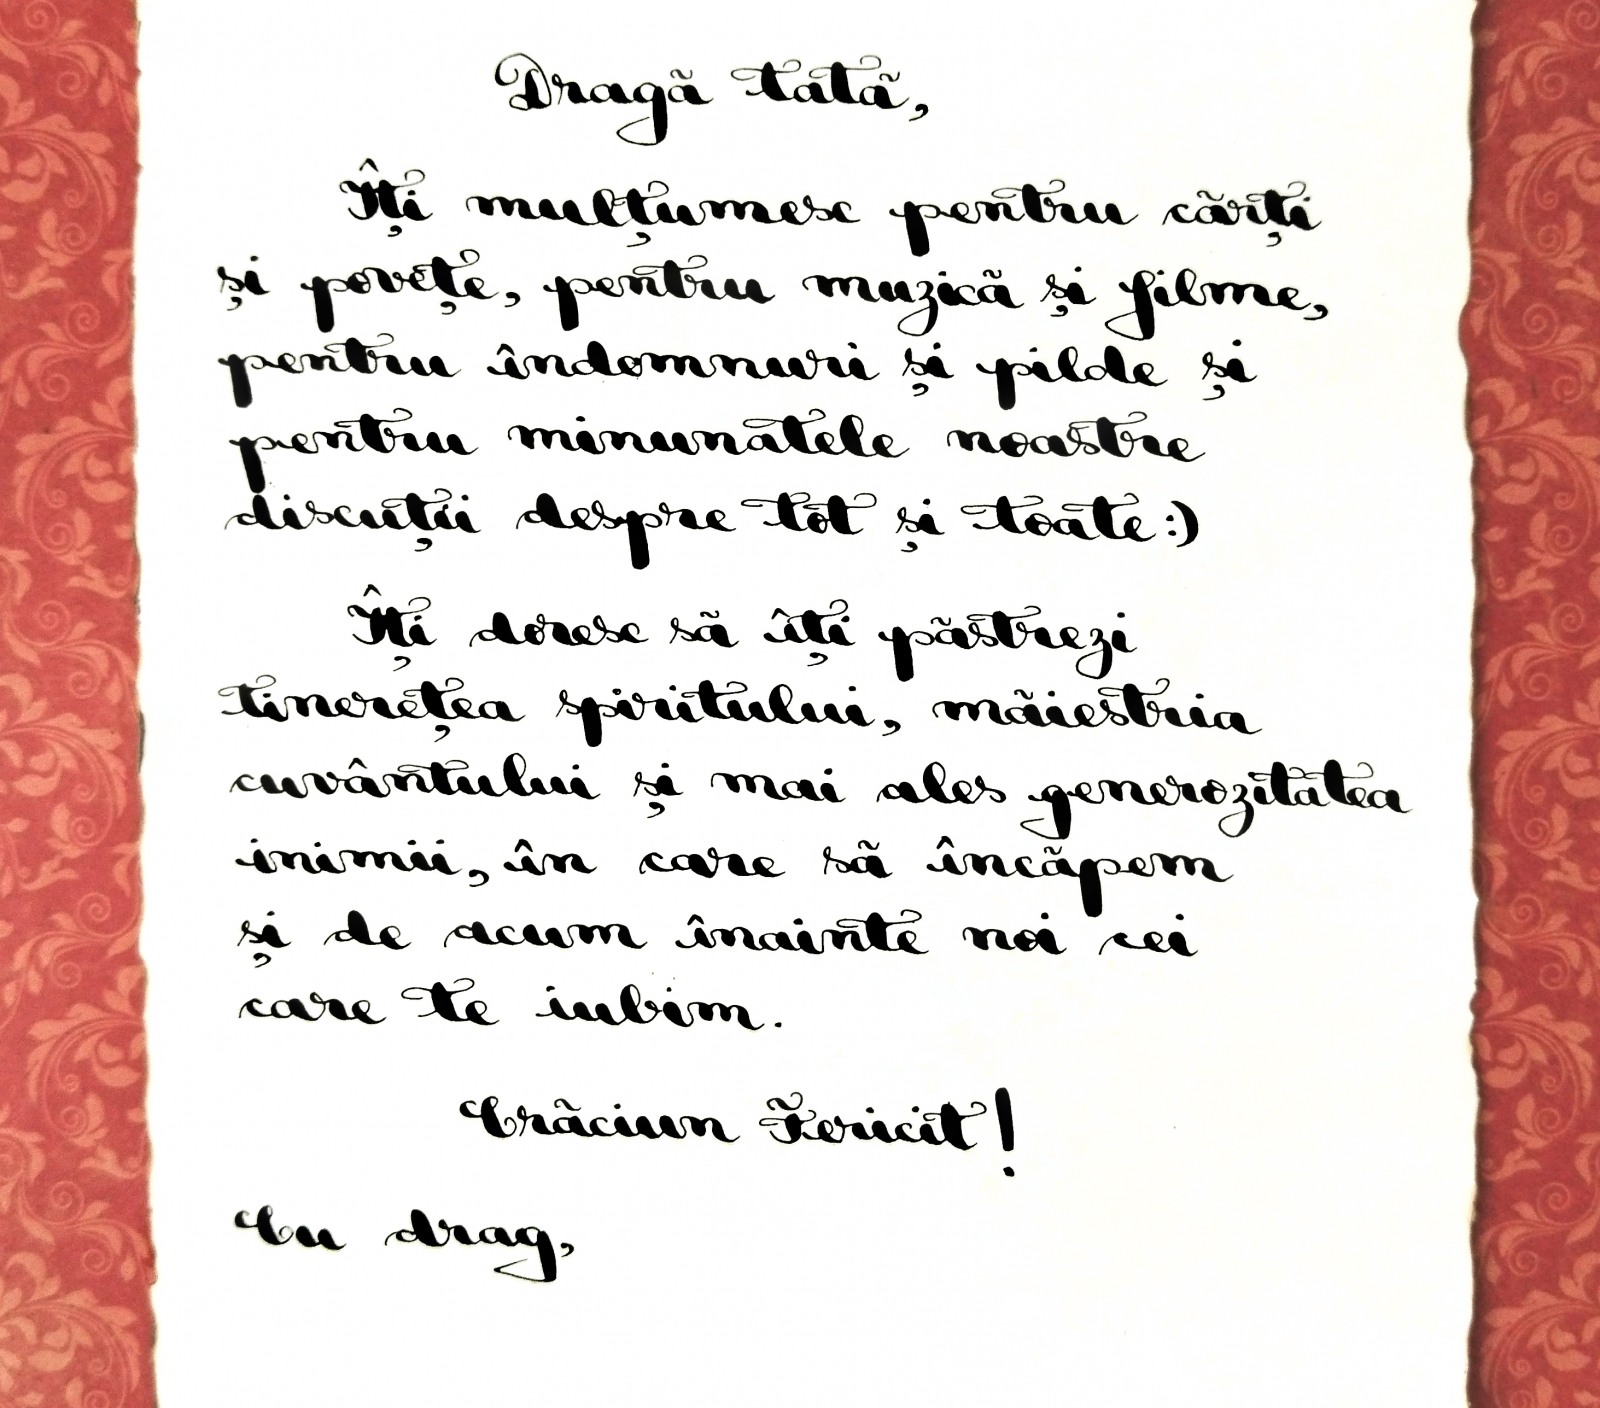 Dragă tată,
Îți mulțumesc pentru cărți
și povețe, pentru muzică și filme,
pentru îndomnuri și pilde și
pentru minunatele noastre
discuții despre tot și toate:)
Îți doresc să îți păstrezi
tinerețea spiritului, măiestria
cuvântului și mai ales generozitatea
inimii, în care să încăpem
și de acum înainte noi cei
care te iubim.
Crăciun Fericit!
Cu drag,